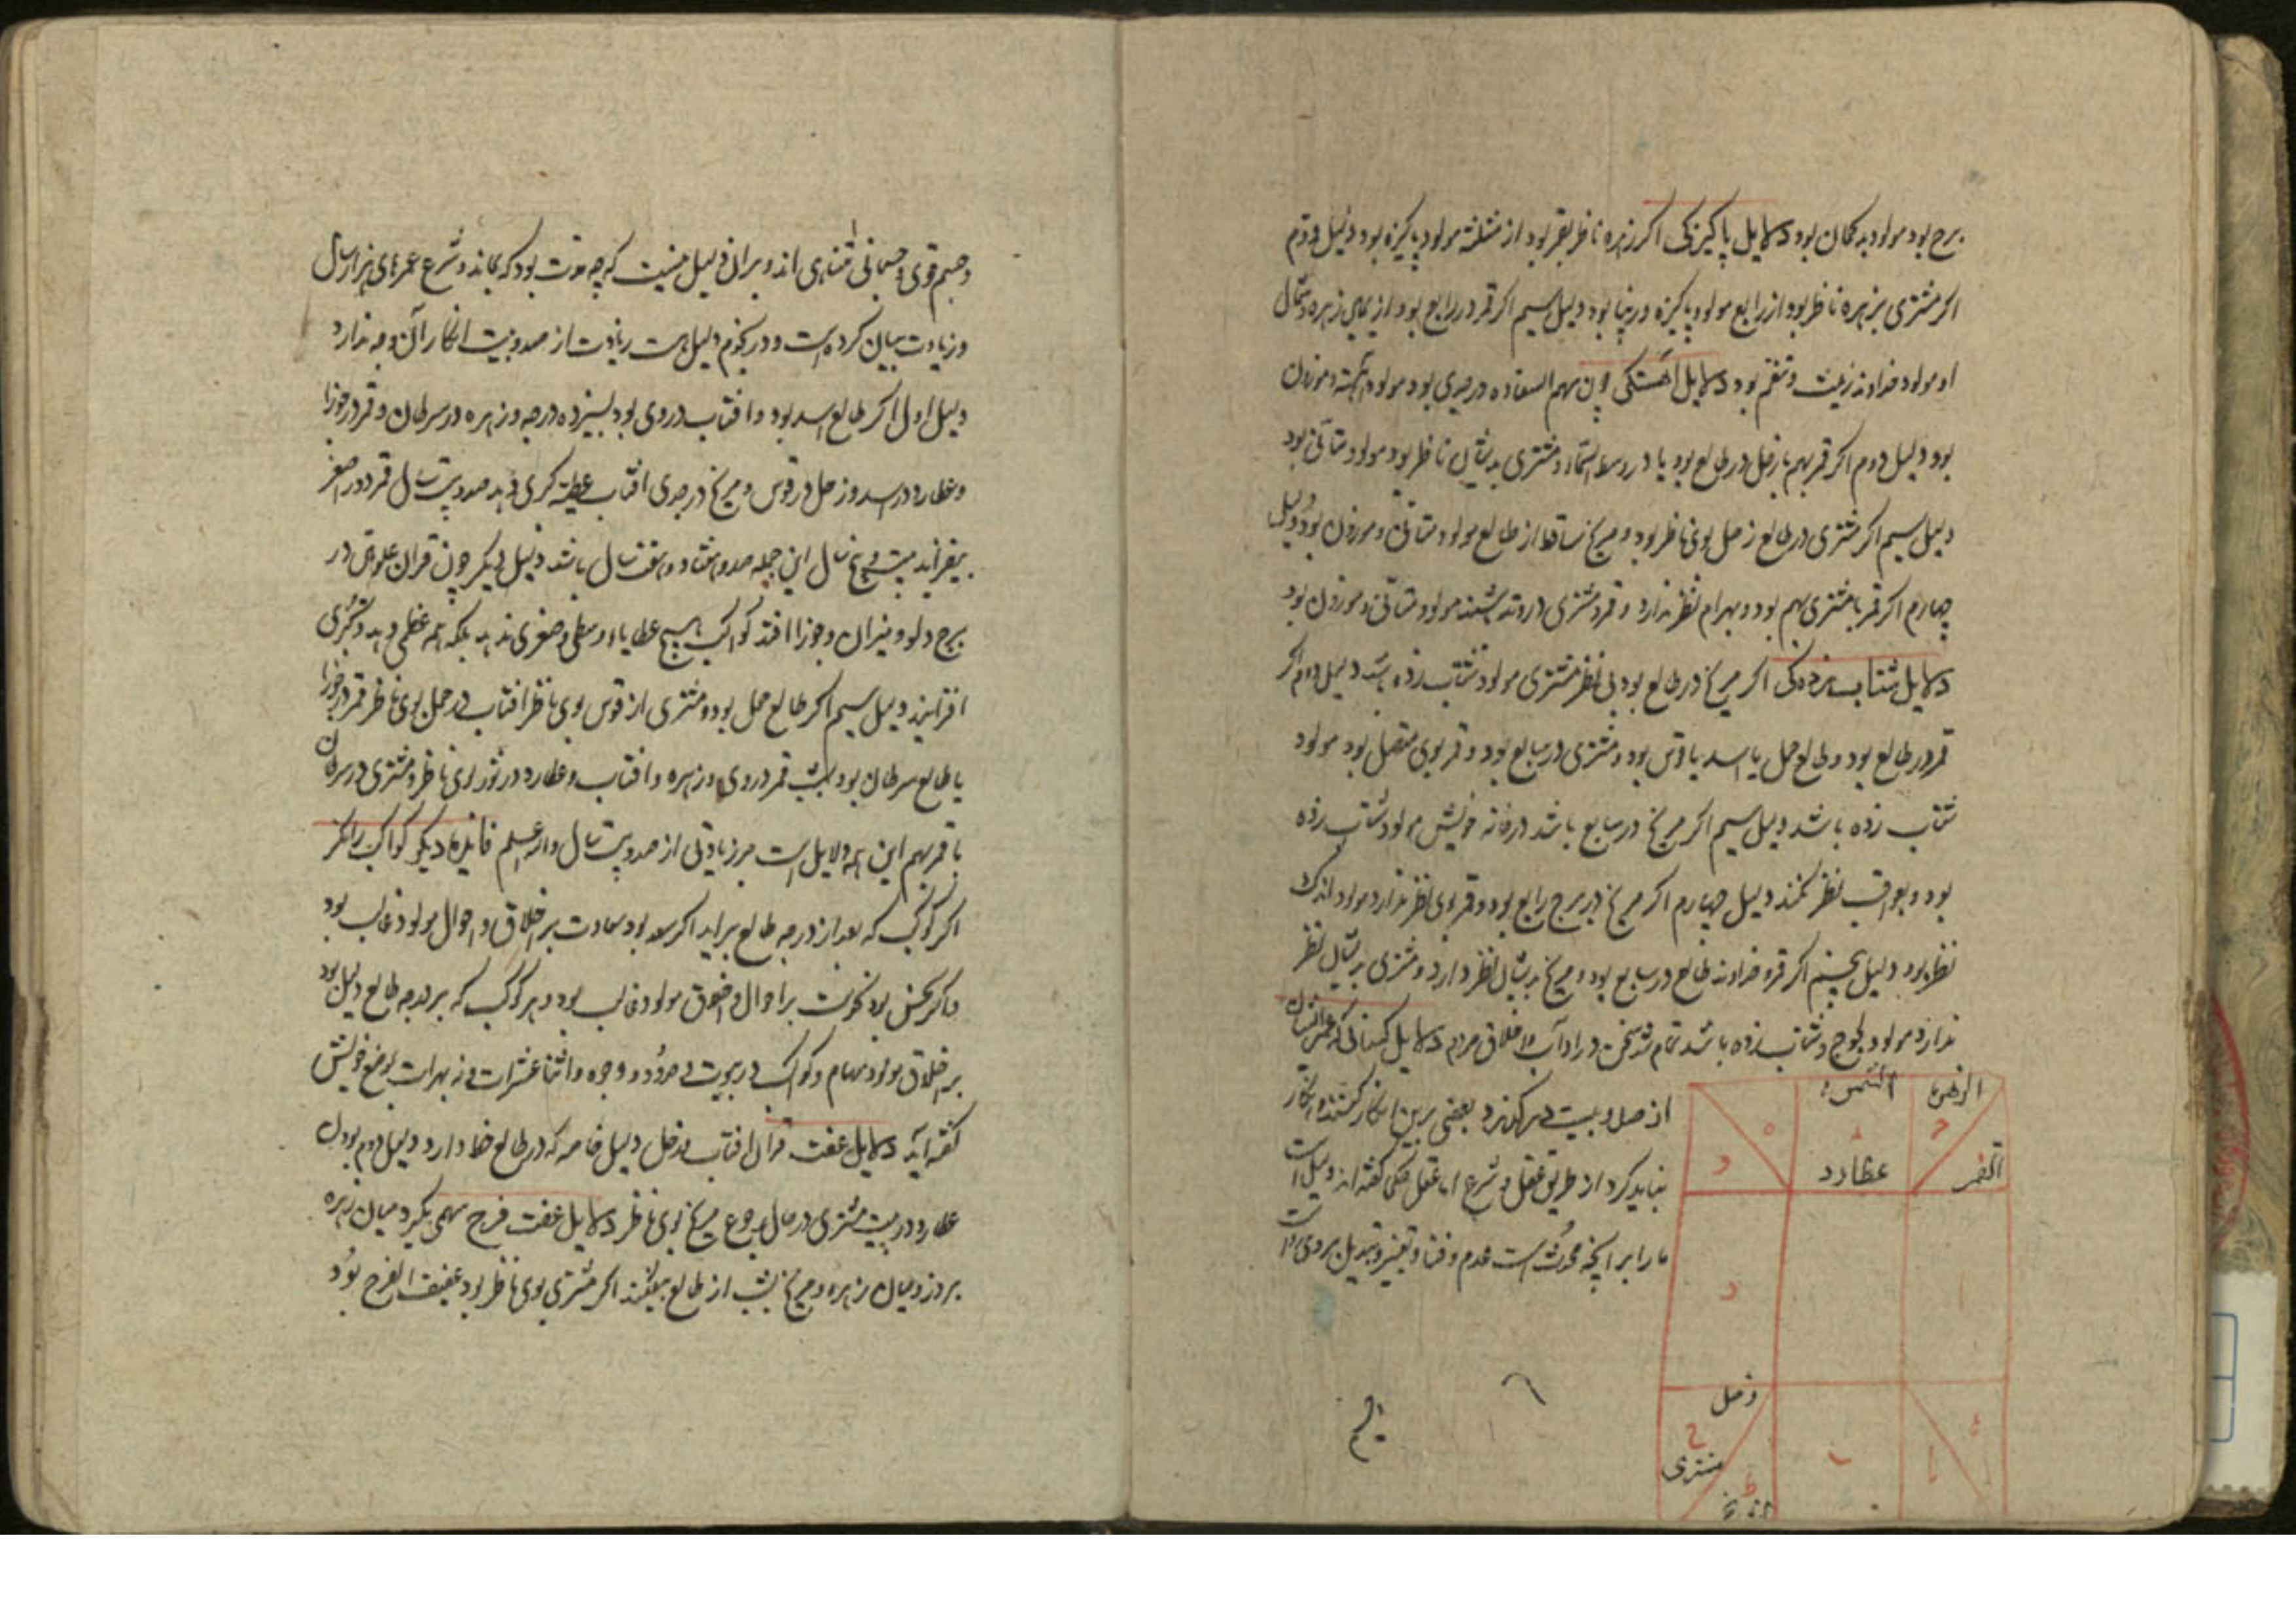 برج بود مولود بدکمان بود دلایل پاکیزکی اکر زهره ناظر بقمر بود از مثلثه مولود پاکیزه بود دلیل دوم
اکر مشتری بزهره ناظر بود از رابع مولود پاکیزه و رعنا بود دلیل سیم اکر قمر در رابع بود از بهای زهره و شمال
او مولود خداوند زینت و تنعم بود دلایل اهستکی چون سهم السعاده در جدی بود مولود اهسته و موزون
بود دلیل دوم اکر قمر بهم با زحل در طالع بود یا در وسط السماء و مشتری بدیشان ناظر بود مولود متانی بود
دلیل سیم اکر مشتری در طالع زحل بوی ناظر بود و مریخ ساقط از طالع مولود متانی و موزون بود دلیل
چهارم اکر قمر با مشتری بهم بود و بهرام نظر ندارد و قمر و مشتری در وتد باشند مولود متانی و موزون بود
دلایل شتاب زدکی اکر مریخ در طالع بود بی نظر مشتری مولود شتاب زده باشد دلیل دوم اکر
قمر در طالع بود و طالع حمل یا اسد یا قوس بود و مشتری در سابع بود و قمر بوی متصل بود مولود
شتاب زده باشد دلیل سیم اکر مریخ در سابع باشد در خانه خویش مولود شتاب زده
بود و بعواقب نظر نکند دلیل چهارم اکر مریخ در برج رابع بود و قمر بوی نظر ندارد مولود اندک
نظر بود دلیل پنجم اکر قمر و خداوند طالع در سابع بود و مریخ بدیشان نظر دارد و مشتری بدیشان نظر
ندارد مولود لجوج و شتاب زده باشد تمام شد سخن در اداب و اخلاق مردم دلایل کسانی که عمر ایشان
از صد و بیست درکذرد بعضی برین انکار کنند و انکار
نباید کرد از طریق عقل و شرع اما عقل حکما کفته اند دلیل است
ما را بر انچه محدث است عدم و فنا و تغییر و تبدیل بر وی رواست
الزهره
الشمس
القمر
عطارد
زحل
مشتری
مریخ
و جسم قوی جسمانی متناهی اند و بران دلیل نیست که چه مدت بود که بماند و شرع عمرهای هزار سال
و زیادت بیان کرده است و در نجوم دلیل هست زیادت از صد و بیست انکار آن وجه ندارد
دلیل اول اکر طالع اسد بود و افتاب در وی بود بسیزده درجه و زهره در سرطان و قمر در جوزا
و عطارد در اسد و زحل در قوس و مریخ در جدی افتاب عطیه کبری دهد صد و بیست سال قمر دور اصغر
بیفزاید بیست و پنج سال این جمله صد و هفتاد و هفت سال باشد دلیل دیکر چون قران علویین در
برج دلو و میزان و جوزا افتد کواکب هیچ عطایا اوسطی و صغری ندهد بلکه هم عظمی دهد و کبری
افزایند دلیل سیم اکر طالع حمل بود و مشتری از قوس بوی ناظر افتاب در حمل بوی ناظر قمر در جوزا
یا طالع سرطان بود بشب قمر در وی و زهره و افتاب و عطارد در ثور بوی ناظر و مشتری در سرطان
با قمر بهم این همه دلایل است بر زیادتی از صد و بیست سال والله اعلم فایده دیکر کواکب را نکر
اکر کوکبی که بعد از درجه طالع براید اکر سعد بود سعادت بر اخلاق و احوال مولود غالب بود
و اکر نحس بود نحوست بر احوال و اخلاق مولود غالب بود و هر کوکب که بر درجه طالع دلیل بود
بر اخلاق مولود سهام و کواکب در بیوت و حدود و وجوه و اثنا عشرات و نه بهرات بموضع خویش
کفته آید دلایل عفت قران افتاب و زحل دلیل خاصه که در طالع حظ دارد دلیل دوم بودن
عطارد در بیت مشتری در حال رجوع مریخ بوی ناظر دلایل عفت فرج سهمی بکیرد میان زهره
بروز و میان زهره و مریخ بشب از طالع بیفکند اکر مشتری بوی ناظر بود عفیف الفرج بود